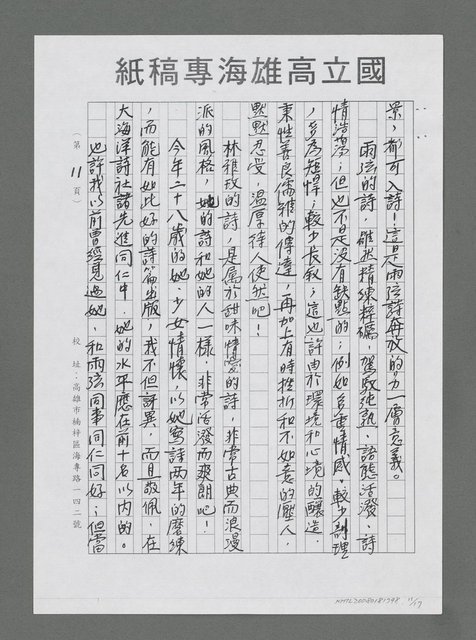 國立高雄海專稿紙
景，都可入詩！這是雨弦詩奔放的力一層意義。
雨弦的詩，雖然精練粹礪，駕馭純熟，諸態活潑，詩
情浩蕩，但也不是沒有缺點的；例如多重情感，較少制理
，多為短悍，較少長敘，這也許由於環境和心境的釀造，
秉性善良儒雅的傳達，再加上有時挫折和不如意的壓人，
默默忍受，溫厚待人使然吧！
林雅玟的詩，是屬於甜味情愛的詩，非常古典而浪漫
派的風格，她的詩和她的人一樣，非常活潑而爽朗吧！
今年二十八歲的她，少女情懷，以她寫詩兩年的磨練
，而能有如此好的詩篇出版，我不但訝異，而且敬佩，在
大海洋詩社諸先進同仁中，她的水平應在前十名以內的。
也許我以前曾經見過她，和雨弦同事同仁同好，但當
（第11頁）
校址：高雄市楠梓區海專路一四二號
NMTL20080181798
11/17